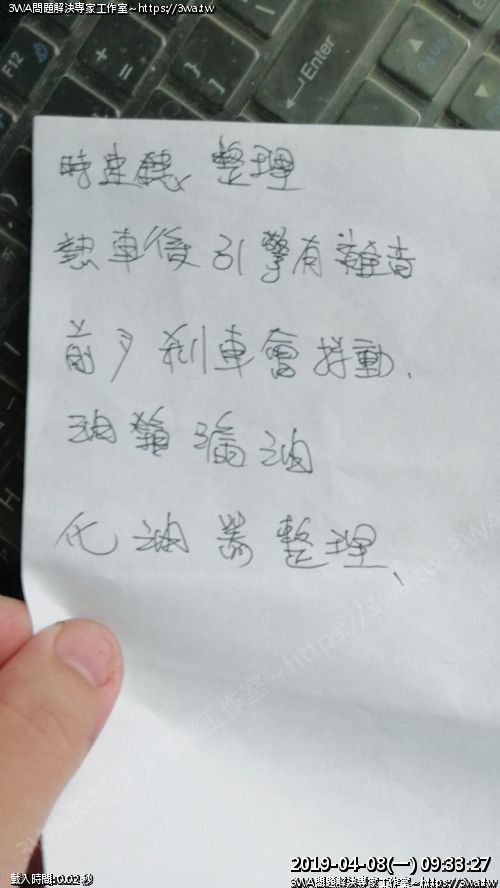 3WA問題解決專家工作室~https://3wa.tw
F12
Enter
PgUp
PgDn
時速錶 整理
熱車後引擎有雜音
前 剎車會抖動、
油箱漏油
化油器整理、
3WA問題解決專家工作室~https://3wa.tw
載入時間:0.02 秒
2019-04-08(一) 09:33:27
3WA問題解決專家工作室~https://3wa.tw